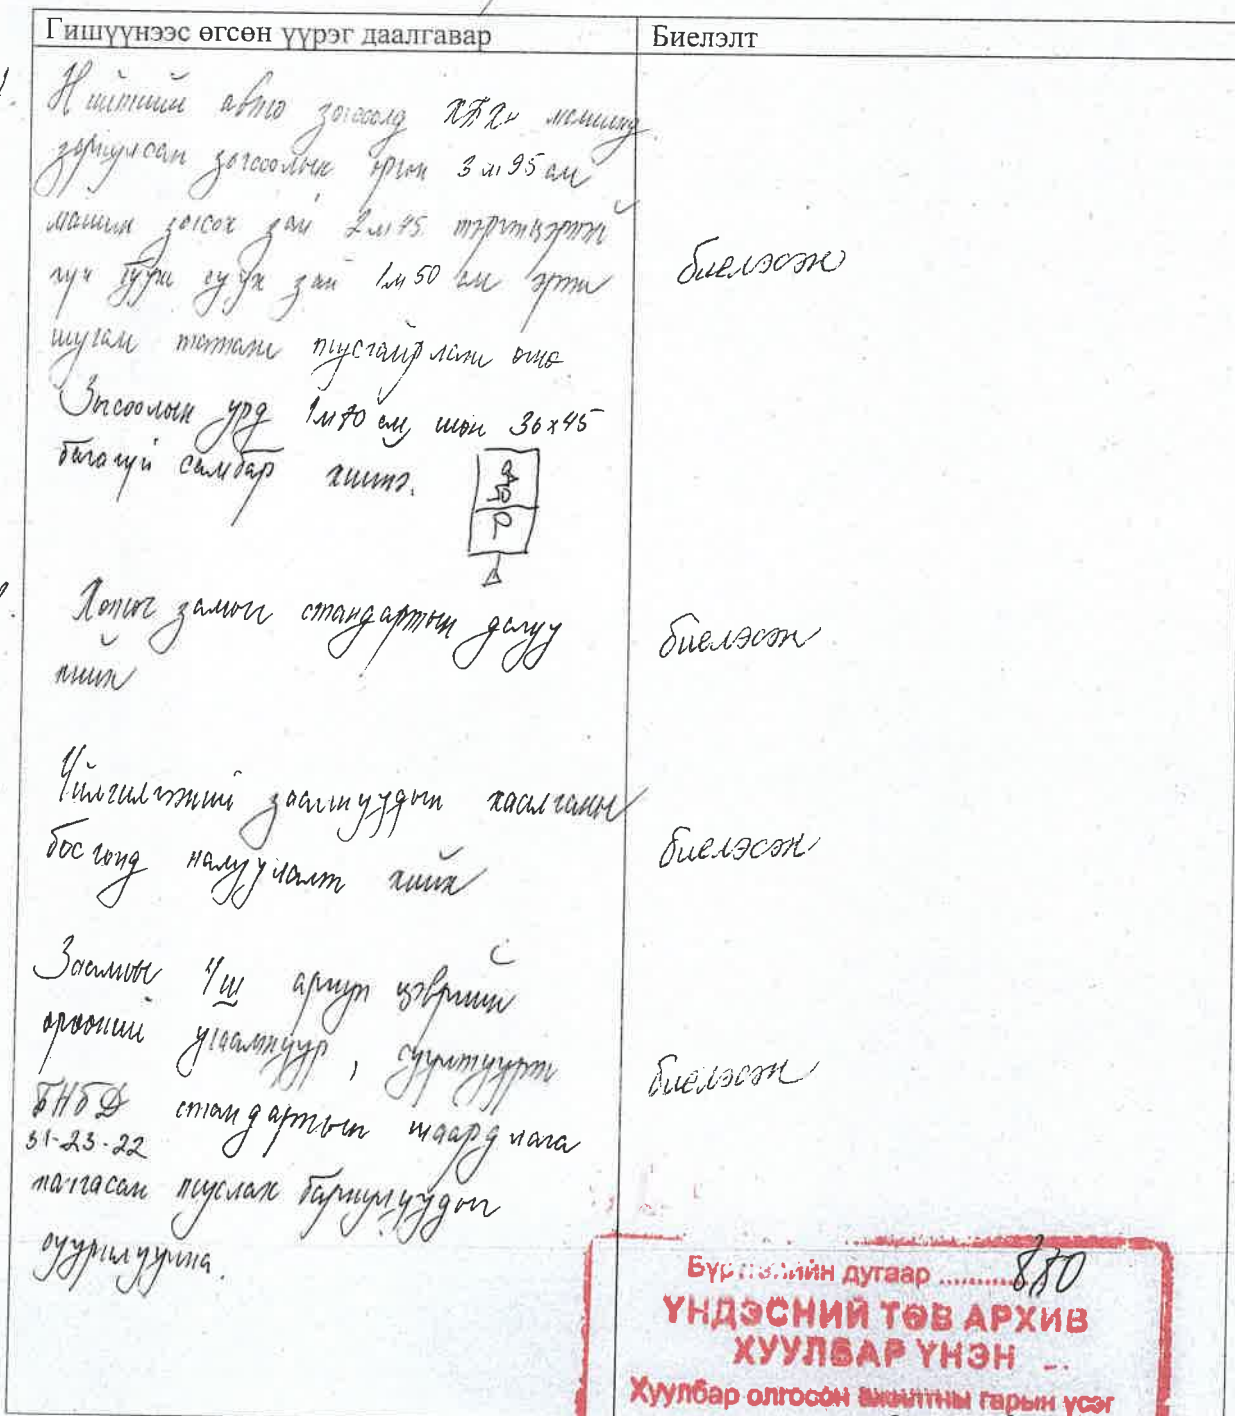 Гишүүнээс өгсөн үүрэг даалгавар
Биелэлт
Нийтийн авто зогсоолд машинд
зориулсан зогсоолын өргөн 3м 95 см
машин зогсох зай 2м 45 тэргэнцэртэй
хүн бууж суух зай 1м 50 см
шугам татаж тусгайрлаж өгнө
биелэсэн
Зогсоолын урд 1м 70 см, шон 30x45
багагүй самбар хийнэ.
замыг стандартын дагуу
хийх
биелэсэн
Үйлчилгээний заалнуудын хаалганы
босгонд налуулалт хийх
биелэсэн
Заалны 4ш ариун цэврийн
өрөөний угаалтуур, суултуурт
БНбД стандартын шаардлага
31-23-22
хангасан туслах бариулуудыг
суурилуулна.
биелэсэн
Бүртгэлийн дугаар ..........
ҮНДЭСНИЙ ТӨВ АРХИВ
ХУУЛБАР ҮНЭН
Хуулбар олгосон ажилтны гарын үсэг